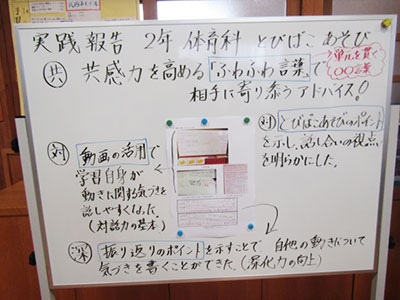 実践報告 2年 体育科 とびばこあそび
共 共感力を高める「ふわふわ言葉」で
単元を貫く
〇〇言葉
相手に寄り添うアドバイス!
対 動画の活用で
学習自身が
動きに関する気づきを
話しやすくなった。
(対話力の基本)
対 とびばこあそびのポイント
を示し、話し合いの視点
を明らかにした。
深 振り返りのポイントを示すことで 自他の動きについて
気づきを書くことができた。(深化力の向上)